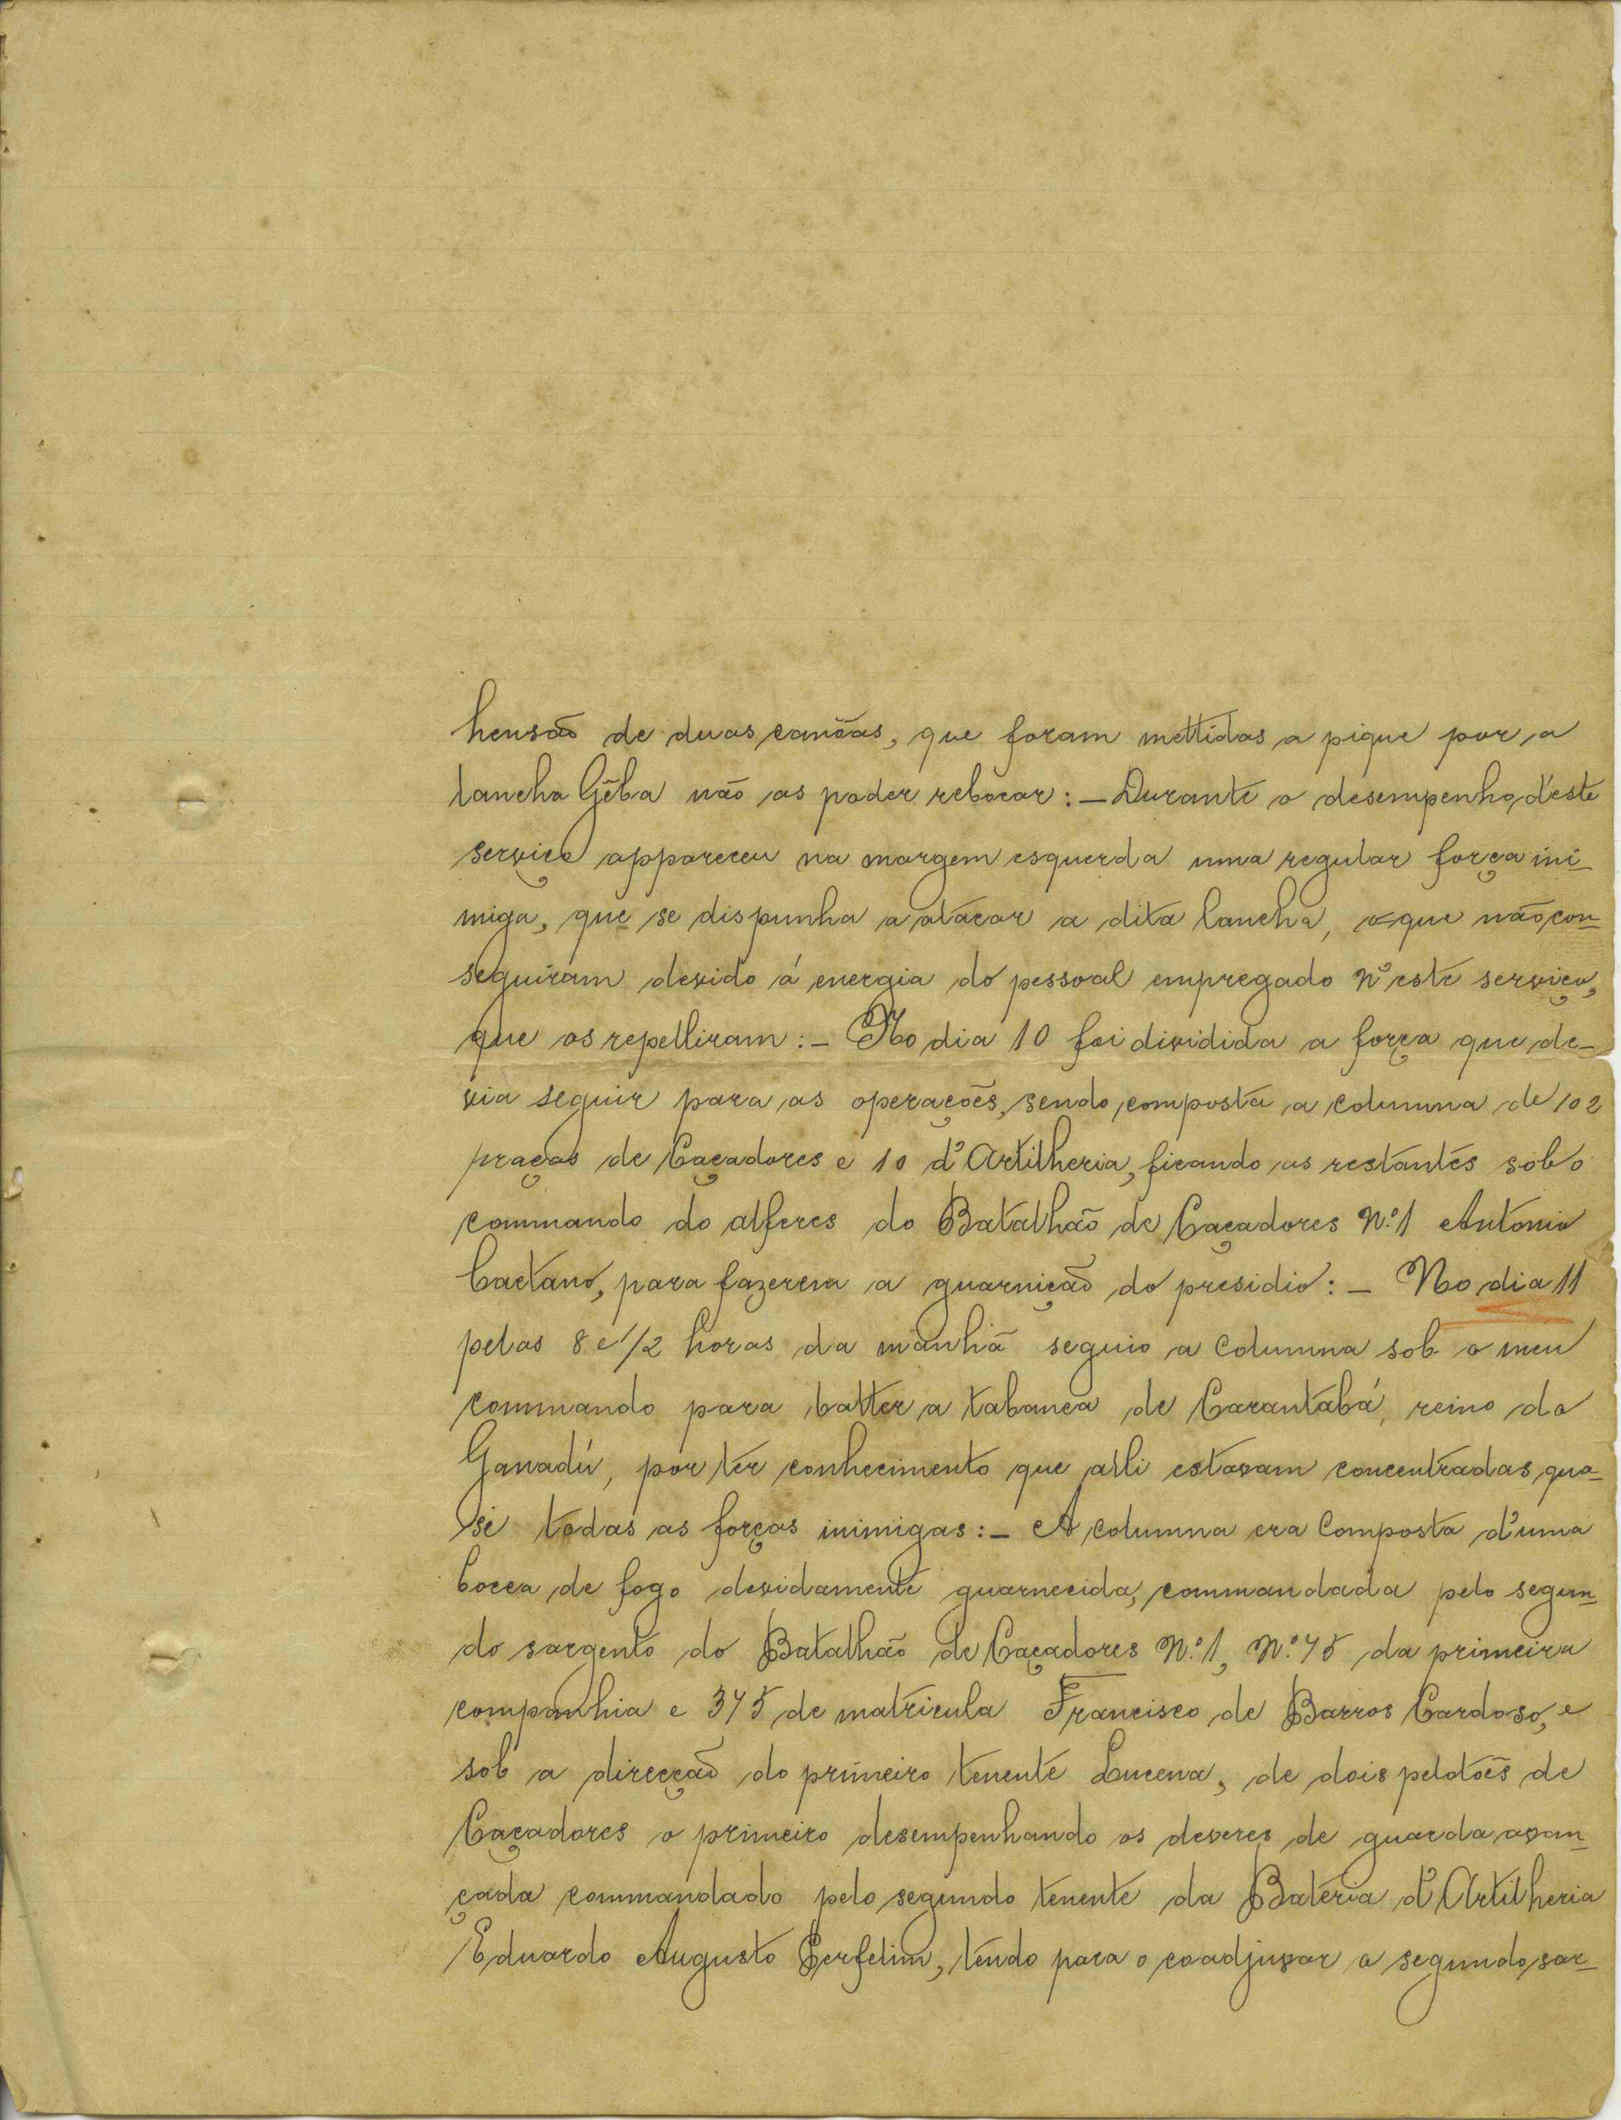 hensão de duas canôas, que foram mettidas a pique por a
lancha Gêba não as poder rebocar: – Durante o desempenho d'este
serviço appareceu na margem esquerda uma regular força ini-
miga, que se dispunha a atacar a dita lancha, o que não con-
seguiram devido á energia do pessoal empregado n'este serviço,
que os repelliram: – No dia 10 foi dividida a força que de-
via seguir para as operações, sendo composta a columna de 102
praças de Caçadores e 10 d'Artilheria, ficando as restantes sob o
commando do alferes do Batalhão de Caçadores Nº 1 Antonio
Caetano, para fazerem a guarnição do presidio: – No dia 11
pelas 8 e 1/2 horas da manhã seguio a columna sob o meu
commando para batter a tabanca de Carantabá, reino do
Ganadú, por ter conhecimento que alli estavam concentradas qua-
si todas as forças inimigas: – A columna era composta d'uma
bocca de fogo devidamente guarnecida, commandada pelo segun-
do sargento do Batalhão de Caçadores Nº 1, Nº 45 da primeira
companhia e 345 de matricula Francisco de Barros Cardoso, e
sob a direcção do primeiro tenente Lucena, de dois pelotões de
Caçadores o primeiro desempenhando os deveres de guarda avan-
çada commandado pelo segundo tenente da Bateria d'Artilheria
Eduardo Augusto Perfelim, tendo para o coadjuvar o segundo sar-